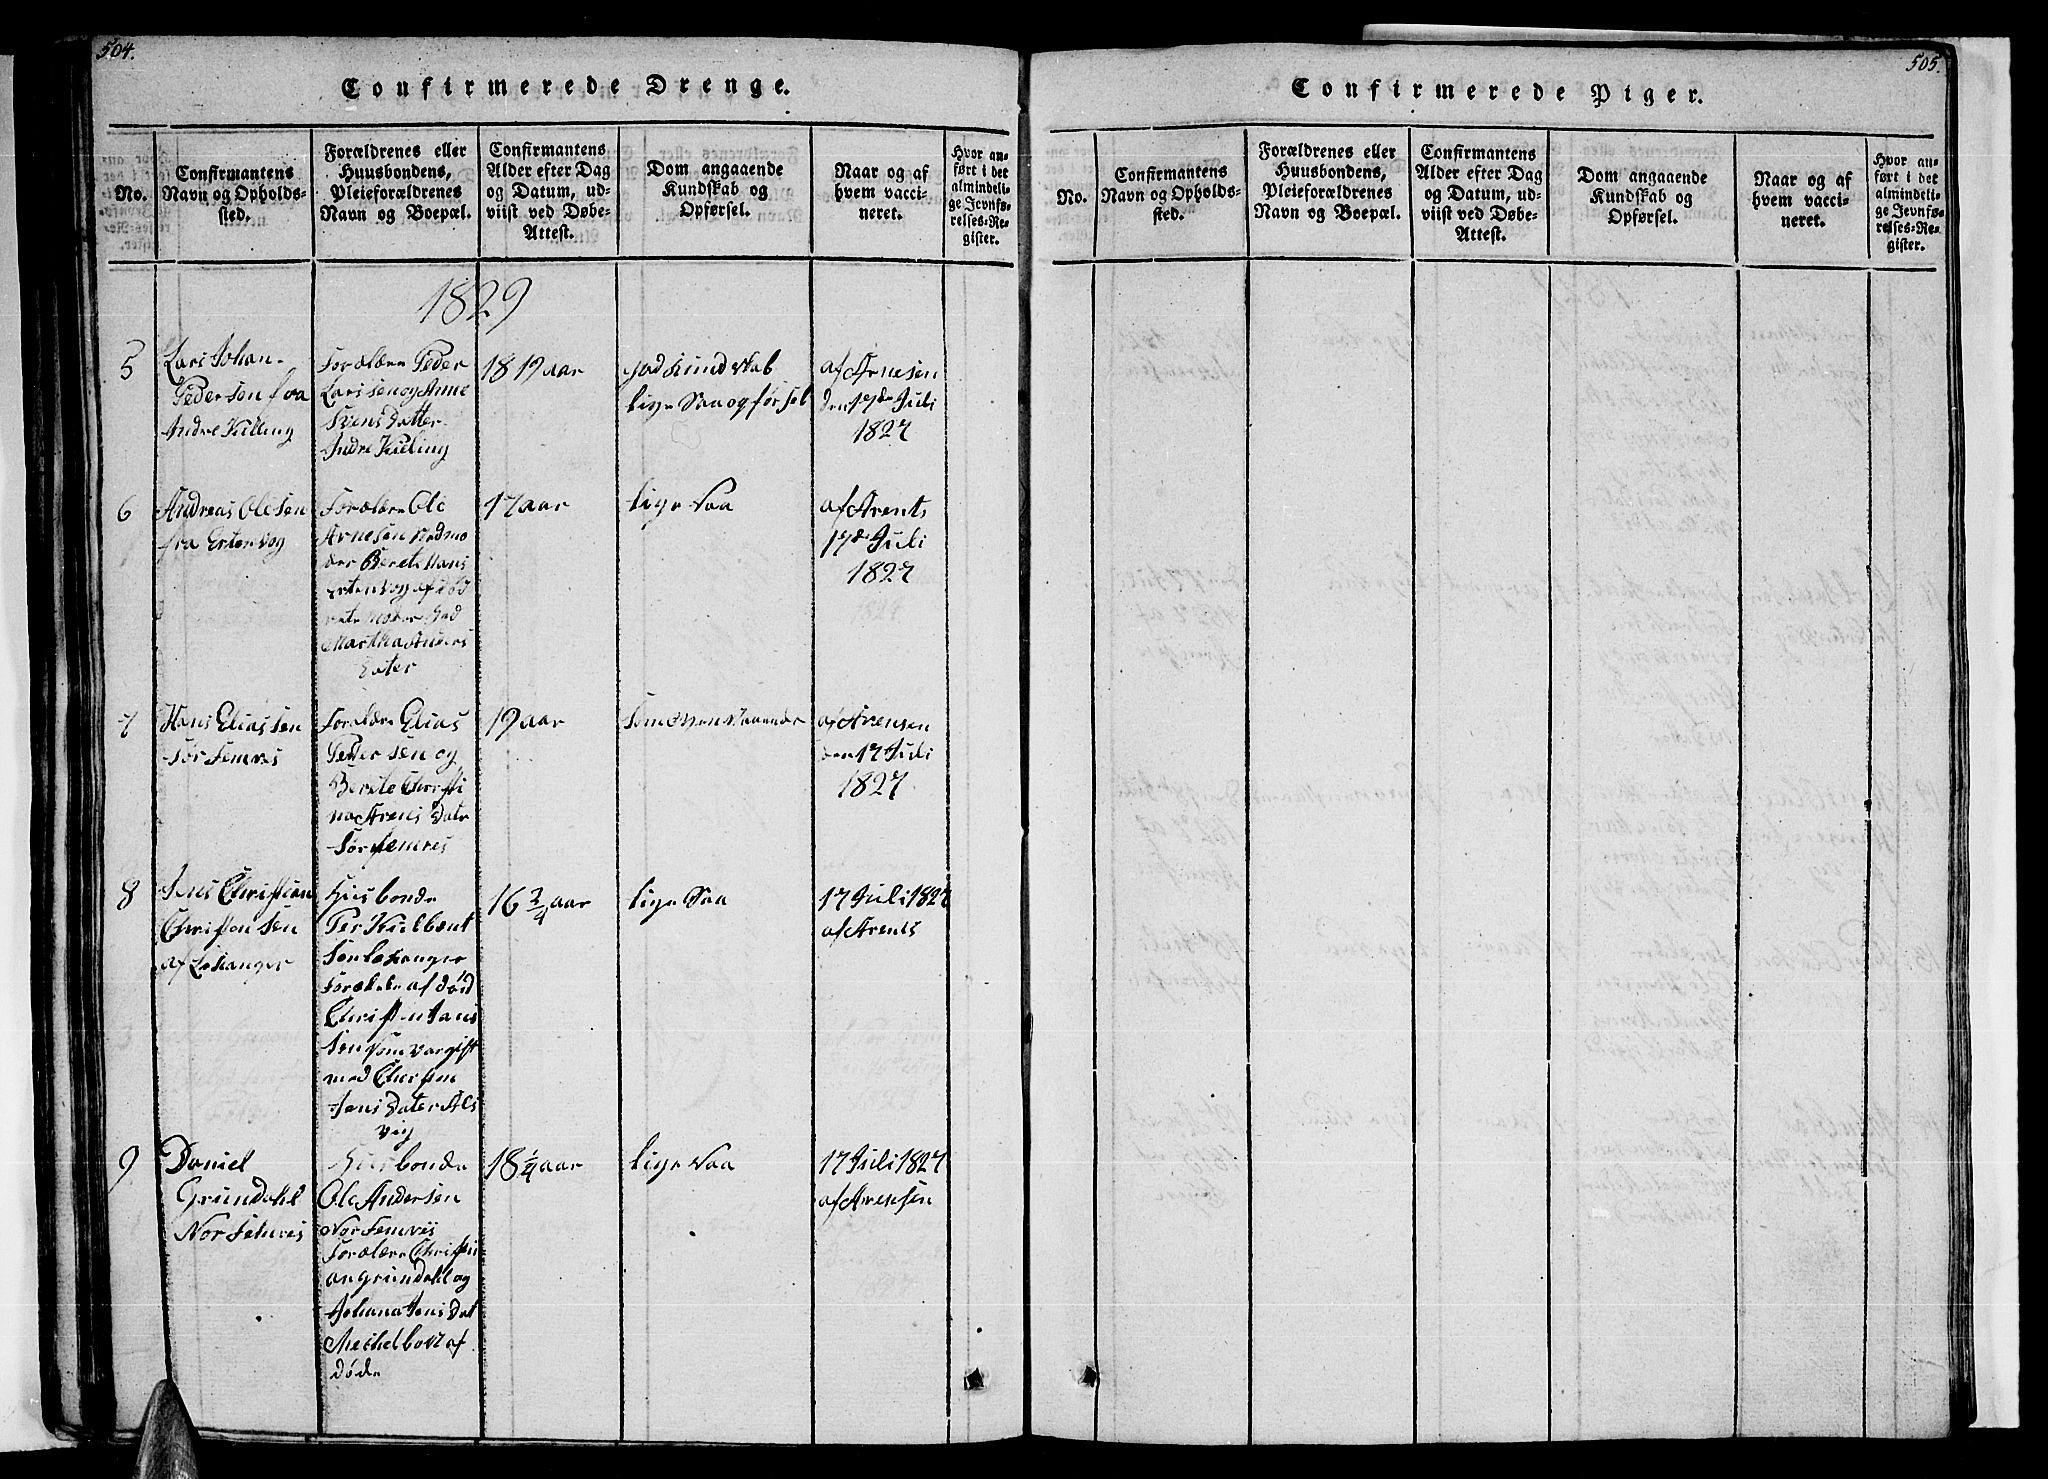 504.
Confirmerede Drenge.
No.
Confirmantens
Navn og Opholds-
sted.
Forældrenes eller
Huusbondens,
Pleieforældrenes
Navn og Boepæl.
Confirmantens
Alder efter Dag
og Datum, ud-
viist ved Døbe-
Attest.
Dom angaaende
Kundskab og
Opførsel.
Naar og af
hvem vacci-
neret.
Hvor an-
ført i det
almindeli-
ge Jevnfø-
relses-Re-
gister.
1829
5
Lars Johan
Pedersen fra
Andre Kieling
Forældre Peder
Larssen og Anne
Svens Datter
Indre Kieling
18 19 aar
god Kundskab
lige Saa ogførsel
af Arnesen
den 17de Juli
1827
6
Andreas Olesen
fra Ertenvog
Forældre Ole
Arnesen Stedmo
der Beret Hans
Ertenvog af død
Martha Anders
Dater
17 aar
lige Saa
af Arents
17de Juli
1827
7
Hans Eliassen
Sør Femris
Forældre Elias
Peder sen og
Berete Christi
na Arens Dater
Sør Femres
19 aar
som ovenstaaende
af Arensen
den 17 Juli
1827
8
Jens Christian
Christensen
af Leianger
Husbonde
Per Kielbent
Sen Leianger
Forældre af død
Christen Jans
Sen som var gift
med Christen
Jens Dater Als
vig
16 3/4 aar
lige Saa
17 Juli 1827
af Arents
9
Daniel
Grundahl
Nor Femres
Husbonde
Ole Andersen
Nor Femris
Forældre Christi
an Grundahl og
Johana Jens Dat
Mechelbost af
døde
18 1/4 aar
lige Saa
17 Juli 1827
af Arensen
505.
Confirmerede Piger.
No.
Confirmantens
Navn og Opholds-
sted.
Forældrenes eller
Huusbondens,
Pleieforældrenes
Navn og Boepæl.
Confirmantens
Alder efter Dag
og Datum, ud-
viist ved Døbe-
Attest.
Dom angaaende
Kundskab og
Opførsel.
Naar og af
hvem vacci-
neret.
Hvor an-
ført i det
almindeli-
ge Jevnfø-
relses-Re-
gister.